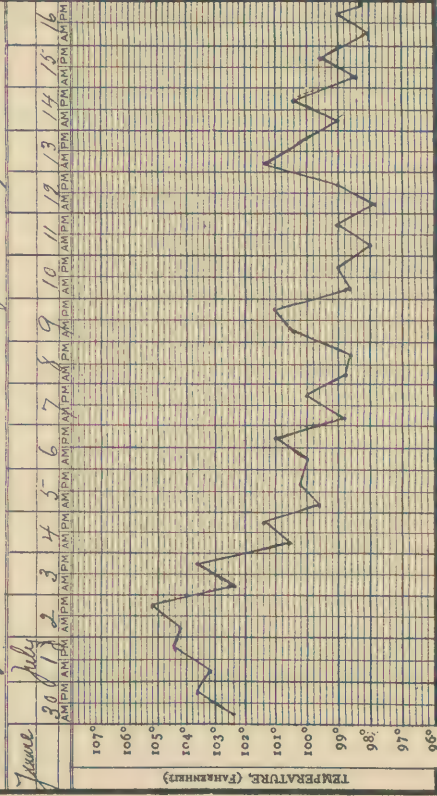 June July
30 1 2 3 4 5 6 7 8 9 10 11 12 13 14 15 16
AM PM AM PM AM PM AM PM AM PM AM PM AM PM AM PM AM PM AM PM AM PM AM PM AM PM AM PM AM PM AM PM AM PM
TEMPERATURE, (FAHRENHEIT)
107°
106°
105°
104°
103°
102°
101°
100°
99°
98°
97°
96°